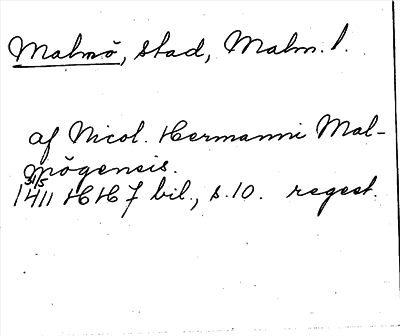 Malmö, stad, Malm. l.
af Nicol. Hermanni Mal-
mögensis.
31/5
1411 HH 7 bil., s. 10. regest.